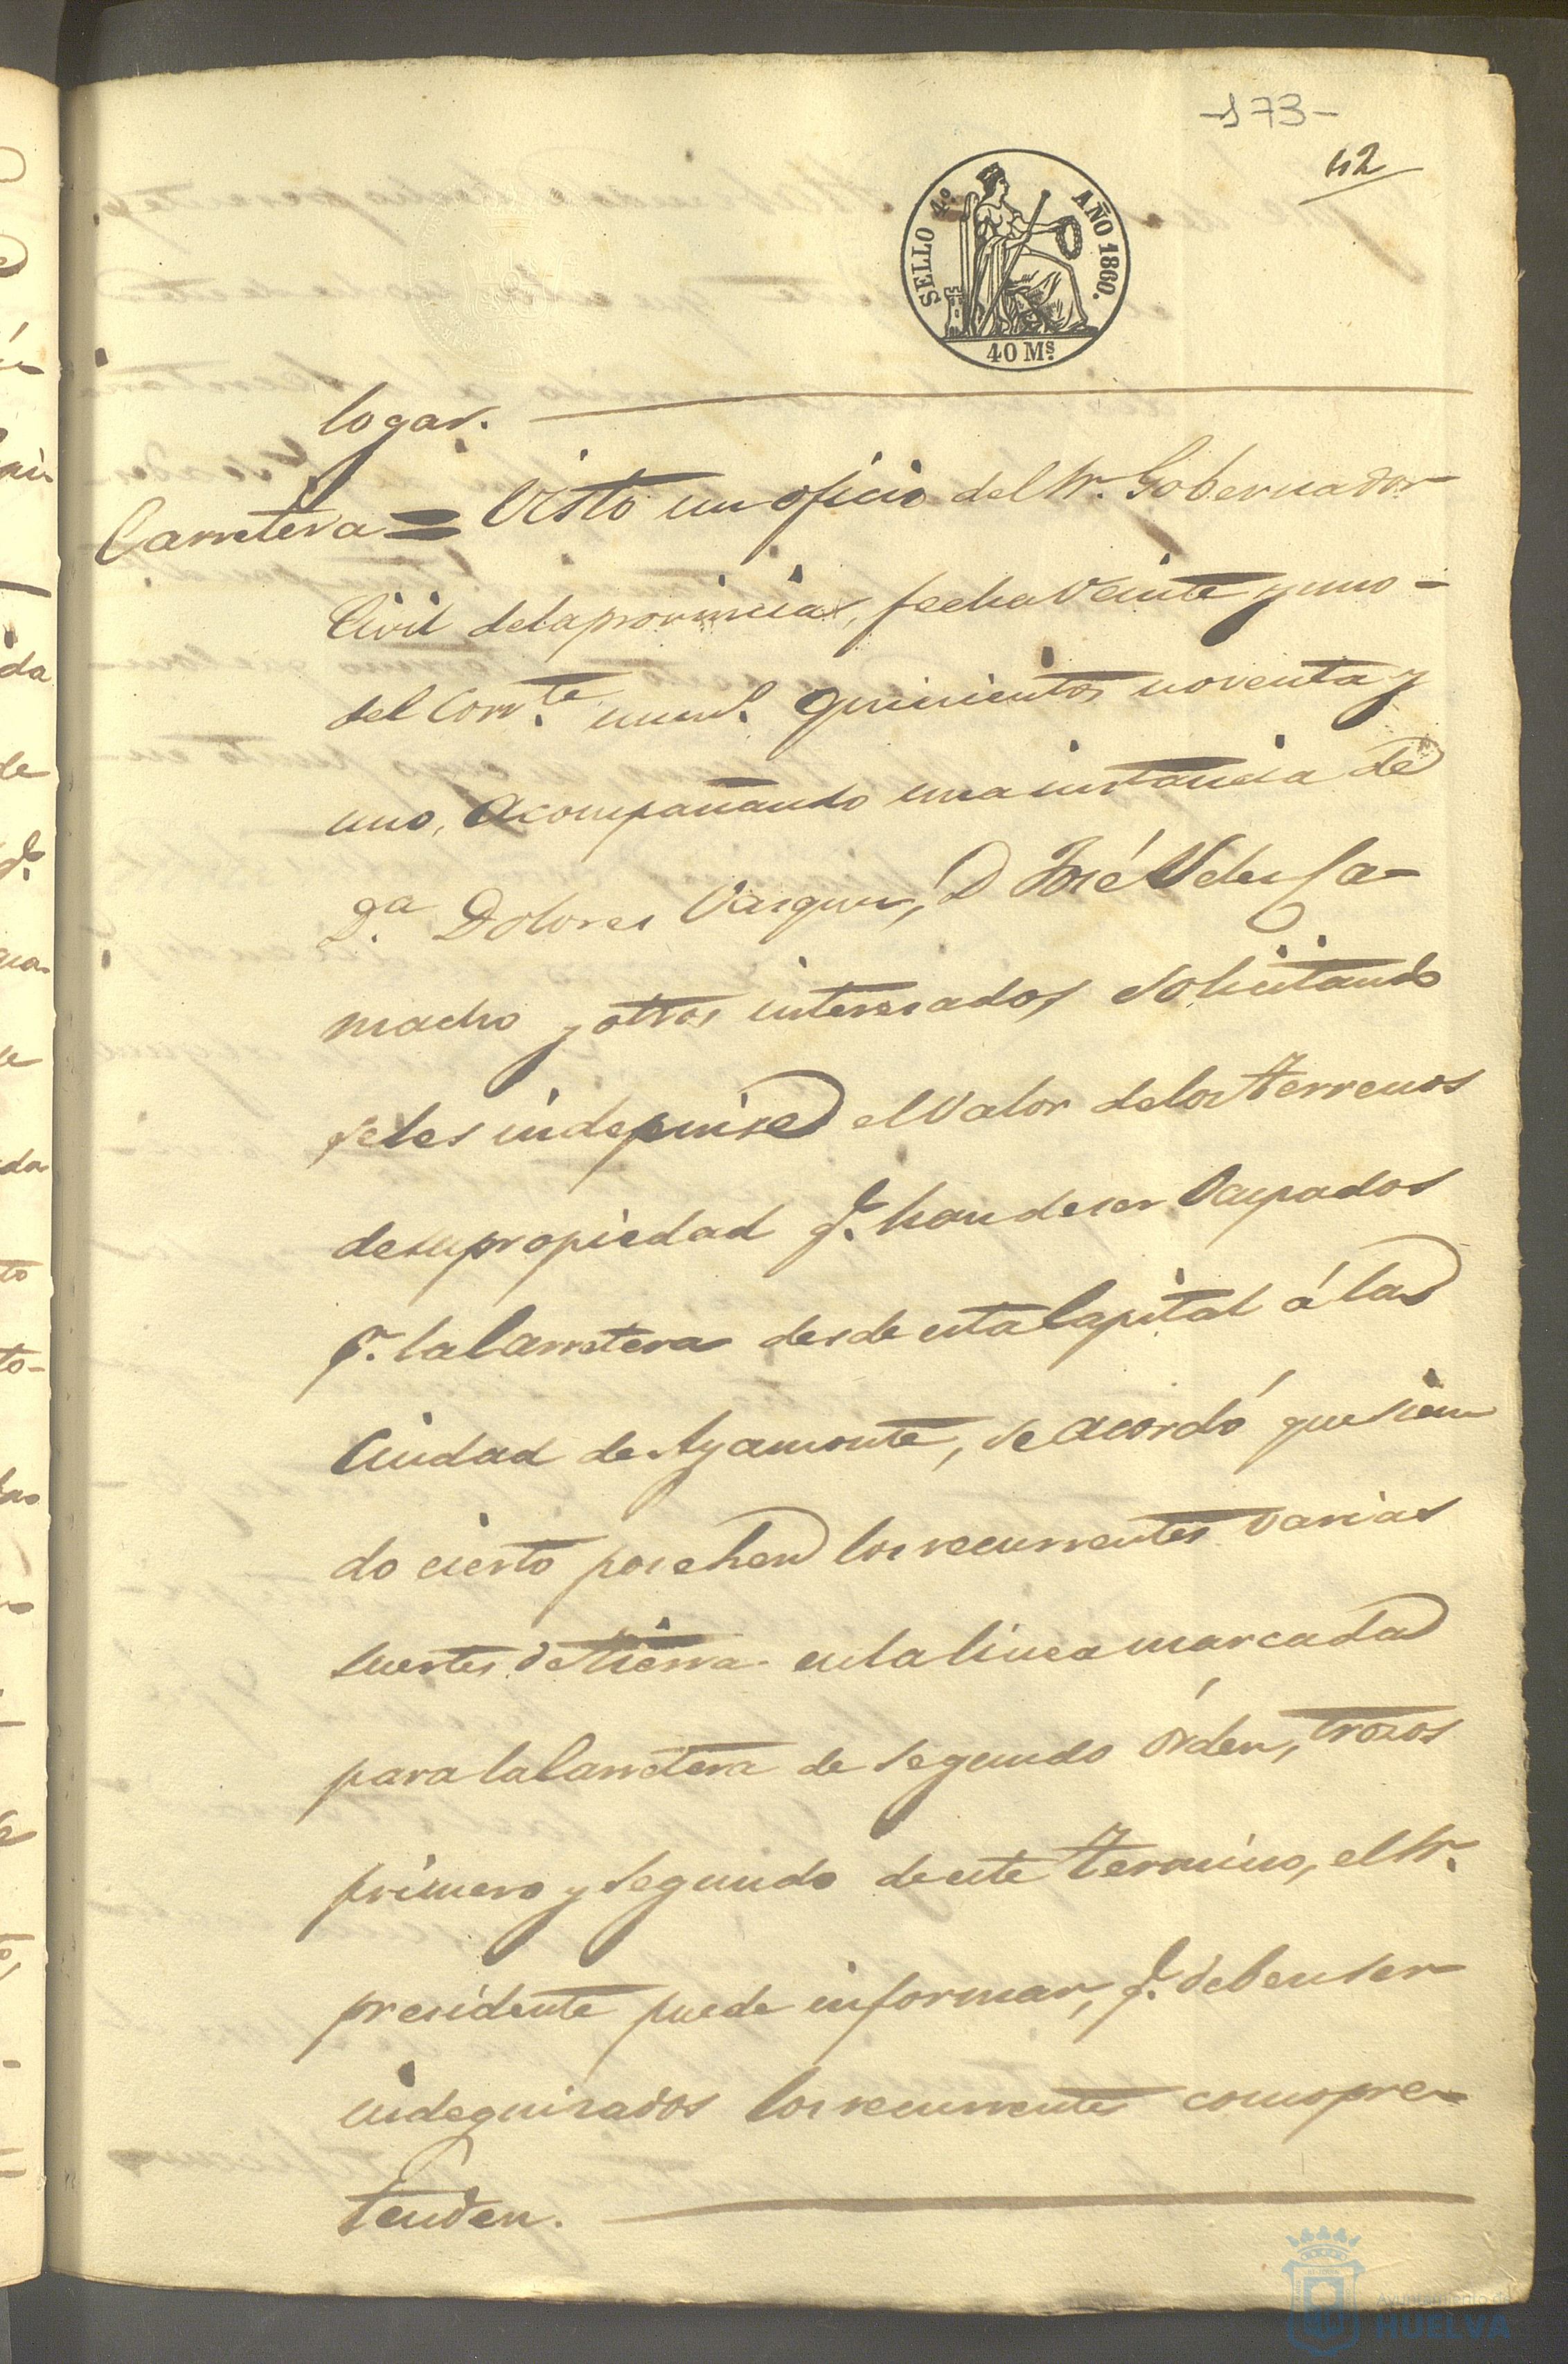 -173-
42
SELLO 4º AÑO 1860.
40 Ms.
logar.
Carretera = Visto un oficio del Sr. Gobernador
Civil de la provincia, fecha veinte y uno -
del corrte. numo. quinientos noventa y
uno, acompañando una instancia de
Da. Dolores Vasquez, D José Velez Ca-
macho y otros interesados solicitando
se les indegnise el valor de los terrenos
de su propiedad q. han de ser ocupados
pr. la Carretera desde esta Capital á la
Ciudad de Ayamonte, se acordó que sien
do cierto posehen los recurrentes varias
suertes de tierra en la linea marcada
para la Carretera de segundo órden, trozos
primero y segundo de este termino, el Sr.
presidente puede informar, q. deben ser
indegnizados los recurrentes como pre-
tenden.
Ayuntamiento de
HUELVA